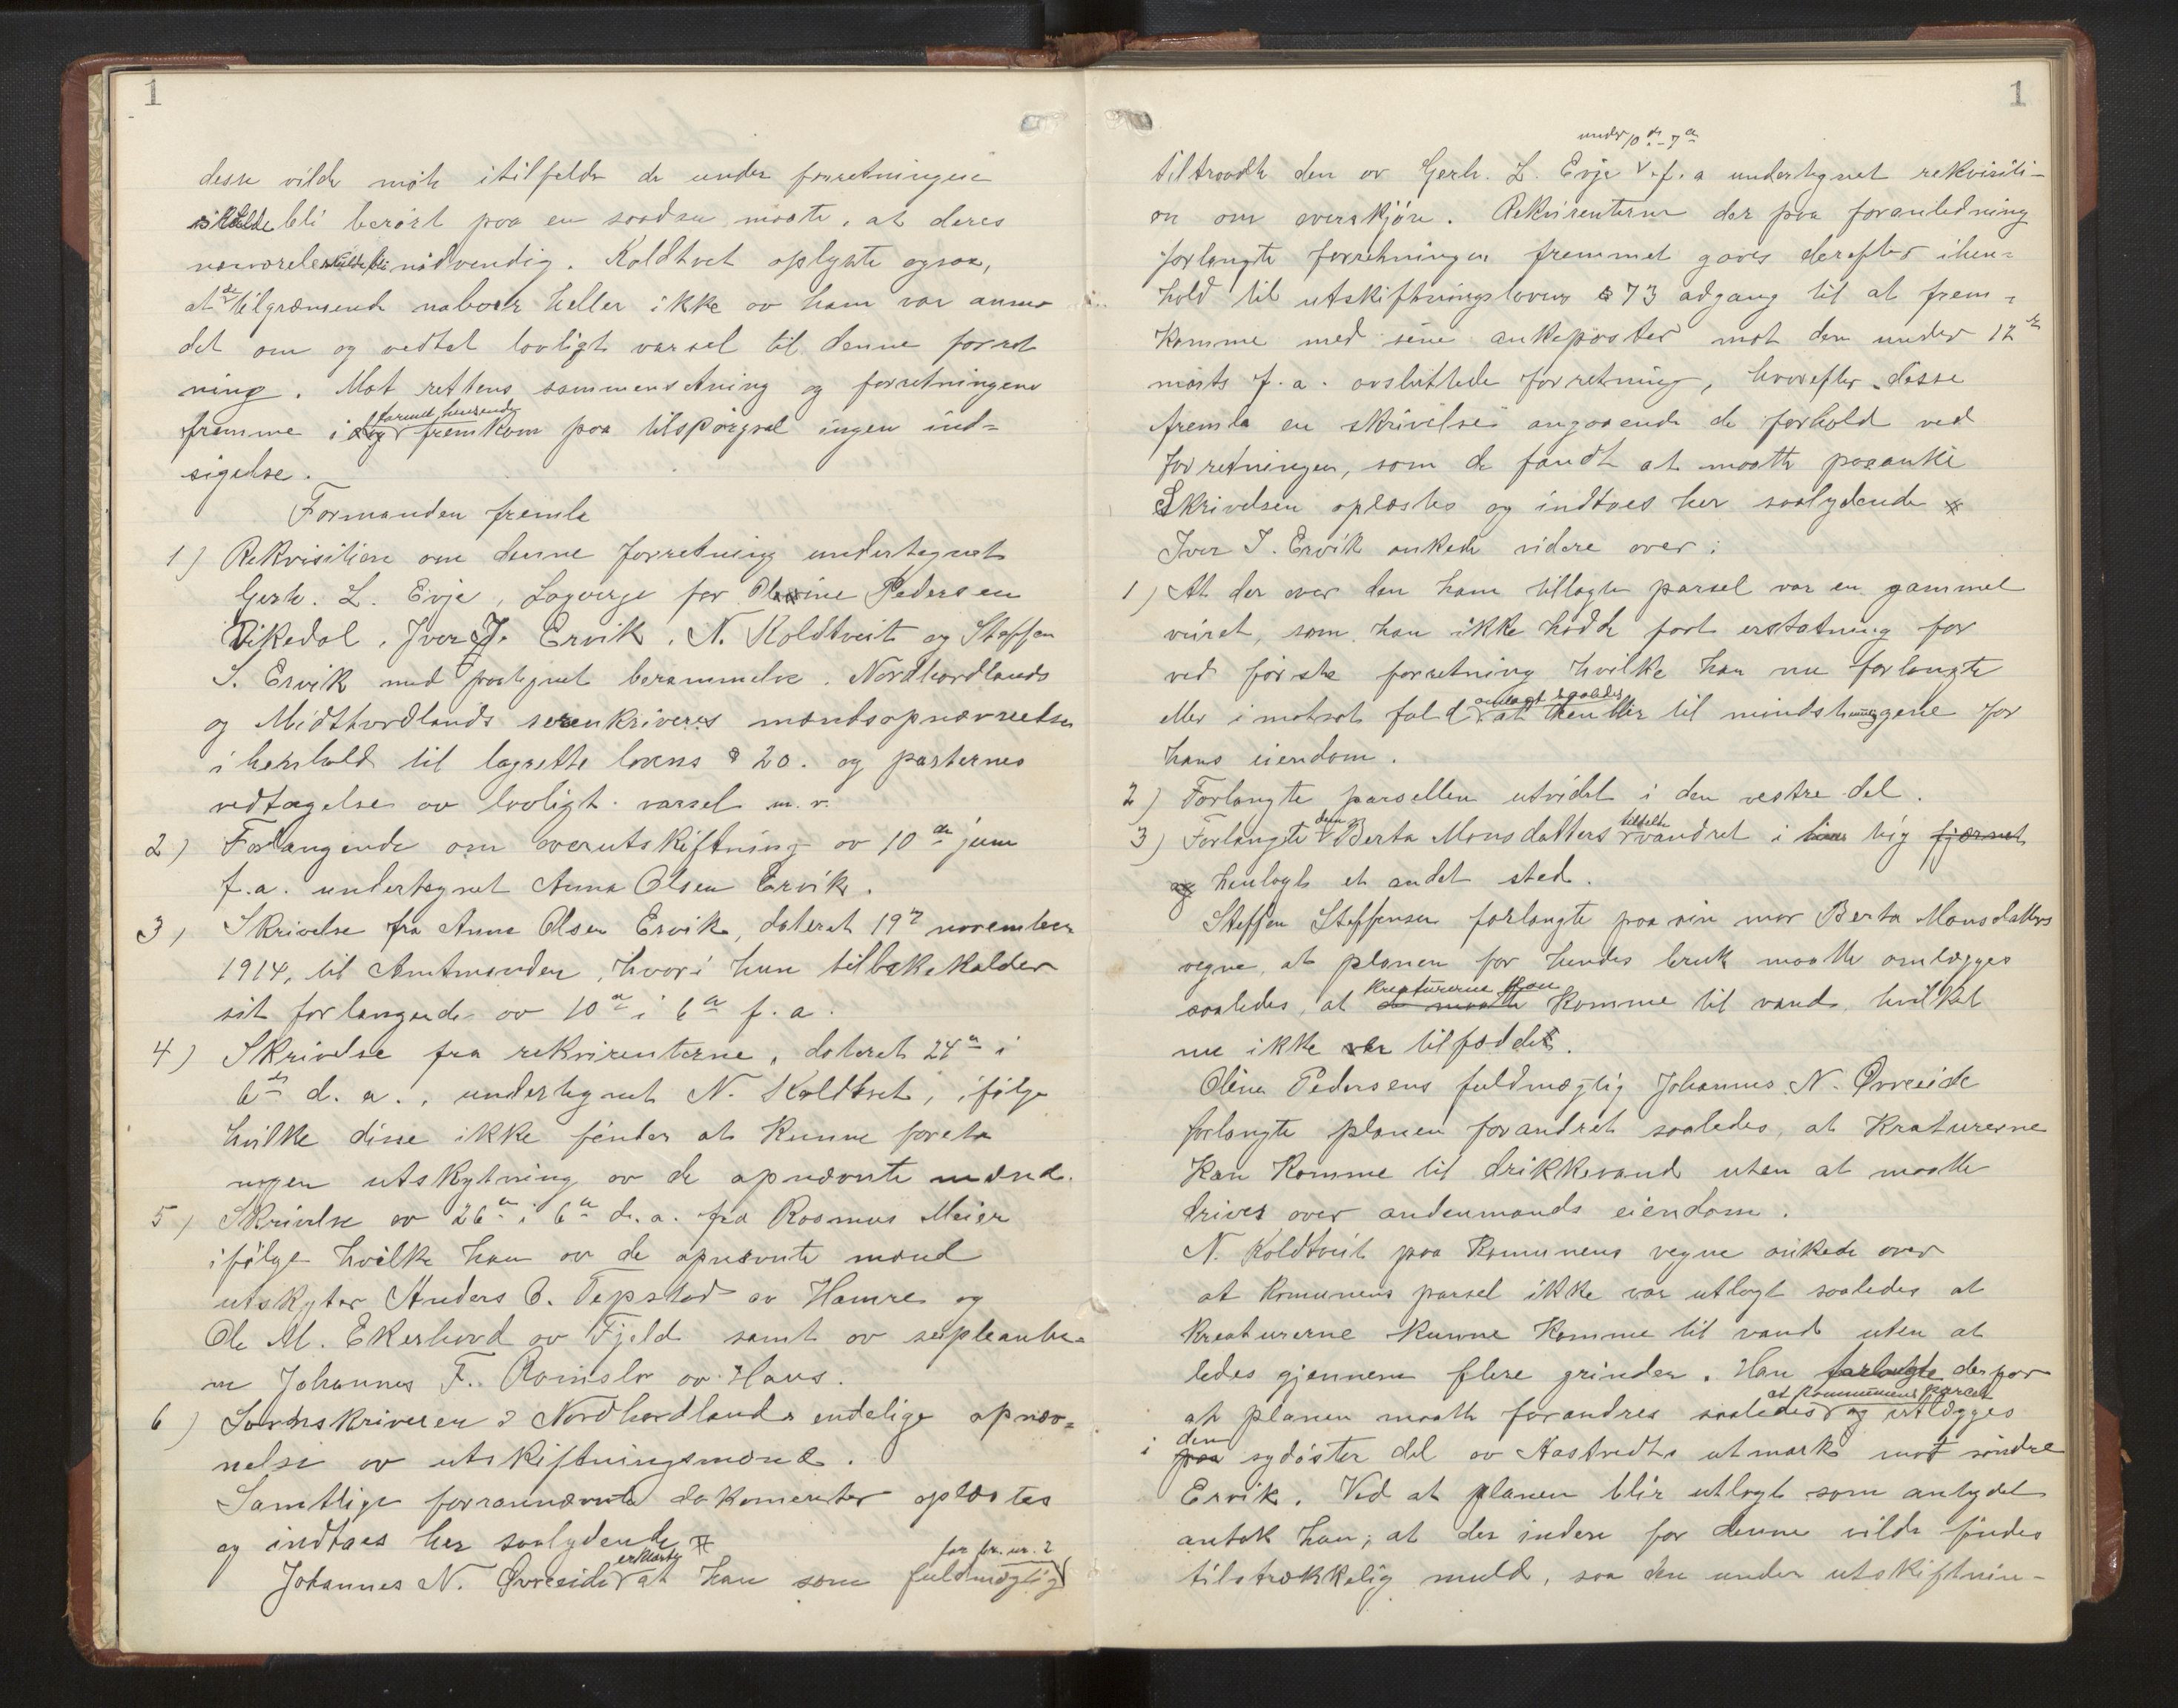 1
desse vilde møte i tilfelde de under forretningen
skulde bli berørt paa en saadan maate, at deres
nærværelse skulde bli nødvendig. Koldtvet oplyste ogsaa,
at de tilgrænsende naboer heller ikke av ham var anmo
det om og vedtat lovligt varsel til denne forret
ning. Mot rettens sammensetning og forretningens
fremme i dag forunet henseende fremkom paa tilspørgsel ingen ind-
sigelse.
Formanden fremla
1) Rekvisition om denne forretning undertegnet
Gerh. L. Evje, Lagverge for Oline Pedersen
Vikedal, Iver J. Ervik, N. Koldtveit og Steffen
S. Ervik med paategnet berammelse, Nordhordlands
og Midthordlands sorenskriveres mandsopnævnelser
i henhold til lagrette lovens § 20. og parternes
vedtagelse av lovligt varsel m.v.
2) Forlangende om overutskiftning av 10de juni
f.a. undertegnet Anna Olsen Ervik.
3) Skrivelse fra Anna Olsen Ervik, dateret 19de november
1914, til Amtmanden, hvori hun tilbakekalder
sit forlangende av 10de i 6te f.a.
4) Skrivelse fra rekvirenterne, dateret 24de i
6te d.a., undertegnet N. Koldtvet, ifølge
hvilke disse ikke finder at kunne foreta
nogen utskytning av de opnævnte mænd.
5) Skrivelse av 26de i 6te d.a. fra Rasmus Meier
ifølge hvilke han av de opnævnte mænd
utskyter Anders O. Tepstad av Hamre og
Ole M. Ekerhovd av Fjeld samt av supleante-
ne Johannes F. Romslo av Haus.
6) Sorenskriveren i Nordhordlands endelige opnæv-
nelse av utskiftningsmænd.
Samtlige forannævnte dokumenter oplæstes
og indtaes her saalydende #
Johannes N. Øvreeide erklærte at han som fuldmægtig for br. nr. 2
1
tiltraadte den av Gerh. L. Evje under 10de - 7de f.a undertegnet rekvisiti-
on om overskjøn. Rekvirenterne der paa foranledning
forlangte forretningen fremmet gaves derefter ihen-
hold til utskiftningslovens § 73 adgang til at frem-
komme med sine ankeposter mot den under 12te
marts f.a. avsluttede forretning, hvorefter disse
fremla en skrivelse angaaende de forhold ved
forretningen, som de fandt at maatte paaanke
Skrivelsen oplæstes og indtaes her saalydende #
Iver J. Ervik ankede videre over:
1) At der over den ham tillagte parsel var en gammel
veiret, som han ikke hadde faat erstatning for
ved første forretning hvilke han nu forlangte
eller i motsat fald anlagt saaledes at den blir til mindst mulig gene for
hans eiendom.
2) Forlangte parsellen utvidet i den vestre del.
3) Forlangte den Berta Monsdatters tildelte vandret i hans teig fjærnet
og henlagt et andet sted.
Steffen Steffensen forlangte paa sin mor Berta Monsdatters
vegne, at planen for hendes bruk maatte omlægges
saaledes, at de maatte kreaturerne kan komme til vand, hvilket
nu ikke er tilfældet.
Oline Pedersens fuldmægtig Johannes N. Øvreeide
forlangte planen forandret saaledes, at kreaturerne
kan komme til drikkevand uten at maatte
drives over andenmands eiendom.
N. Koldtveit paa komunens vegne ankede over
at komunens parsel ikke var utlagt saaledes at
kreaturerne kunne komme til vand uten at
ledes gjennem flere grinder. Han forlangte derfor
at planen maatte forandres saaledes at kommunens parcel og utlægges
i paa den sydøster del av Hastvedts utmark mot søndre
Ervik. Ved at planen blir utlagt som antydet
antok han, at der inden for denne vilde findes
tilstrækkelig muld, saa den under utskiftnin-